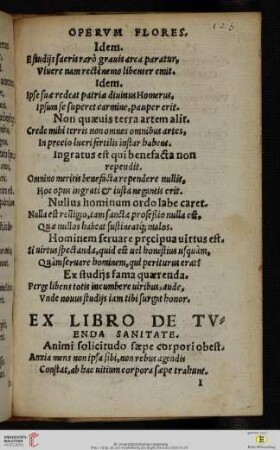 OPERVM FLORES.
Idem.
E studijs sacris rarò grauis arca paratur,
Viuere nam rectè nemo libenter emit.
Idem.
Ipse suæ redeat patriæ diuinus Homerus,
Ipsum se superet carmine, pauper erit.
Non quæuis terra artem alit.
Crede mihi terris non omnes omnibus artes,
In precio lucri fertilis instar habent.
Ingratus est qui benefacta non
rependit.
Omnino meritis benefacta rependere nullis,
Hoc opus ingrati & iusta negantis erit.
Nullus hominum ordo labe caret.
Nulla est relligio, tam sancta professio nulla est,
Quæ nullos habeat iustitiæatq; malos.
Hominem seruare præcipua uirtus est.
Si uirtus spectanda, quid est uel honestius usquàm,
Quàm seruare hominem, qui periturus erat?
Ex studijs fama quærenda.
Perge libens totis incumbere uiribus, aude,
Vnde nouus studijs iam tibi surgit honor.
EX LIBRO DE TV=
ENDA SANITATE.
Animi solicitudo sæpe corpori obest.
Anxia mens non ipsa sibi, non rebus agendis
Constat, ab hac uitium corpora sæpe trahunt.
I